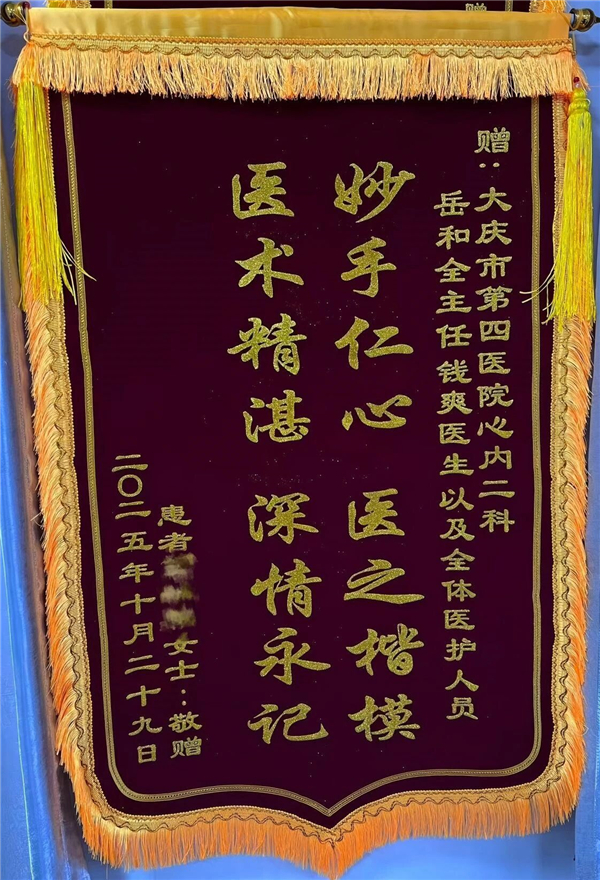 赠
赠：大庆市第四医院心内二科
岳和全主任钱爽医生以及全体医护人员
妙手仁心 医之楷模
医术精湛 深情永记
患者 女士：敬赠
二〇二五年十月二十九日